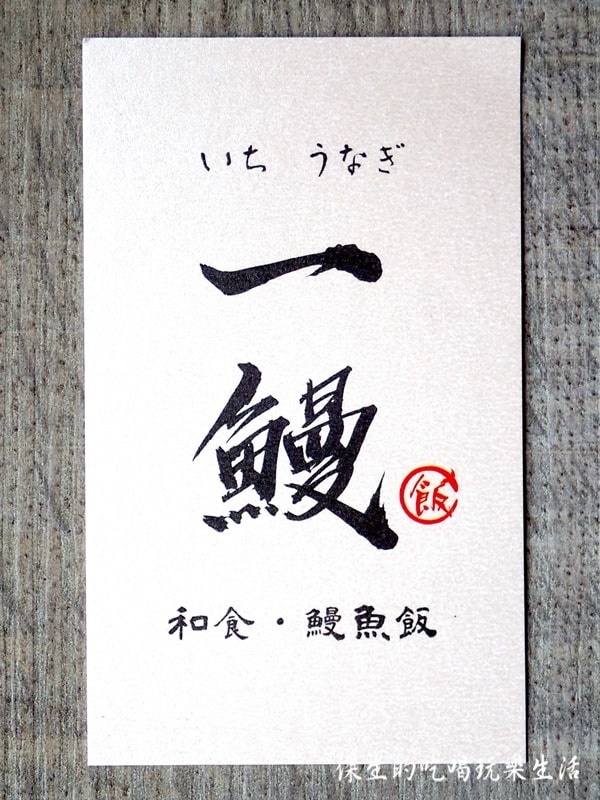 いち うなぎ
一
鰻
飯
和食・鰻魚飯
保生的吃喝玩樂生活